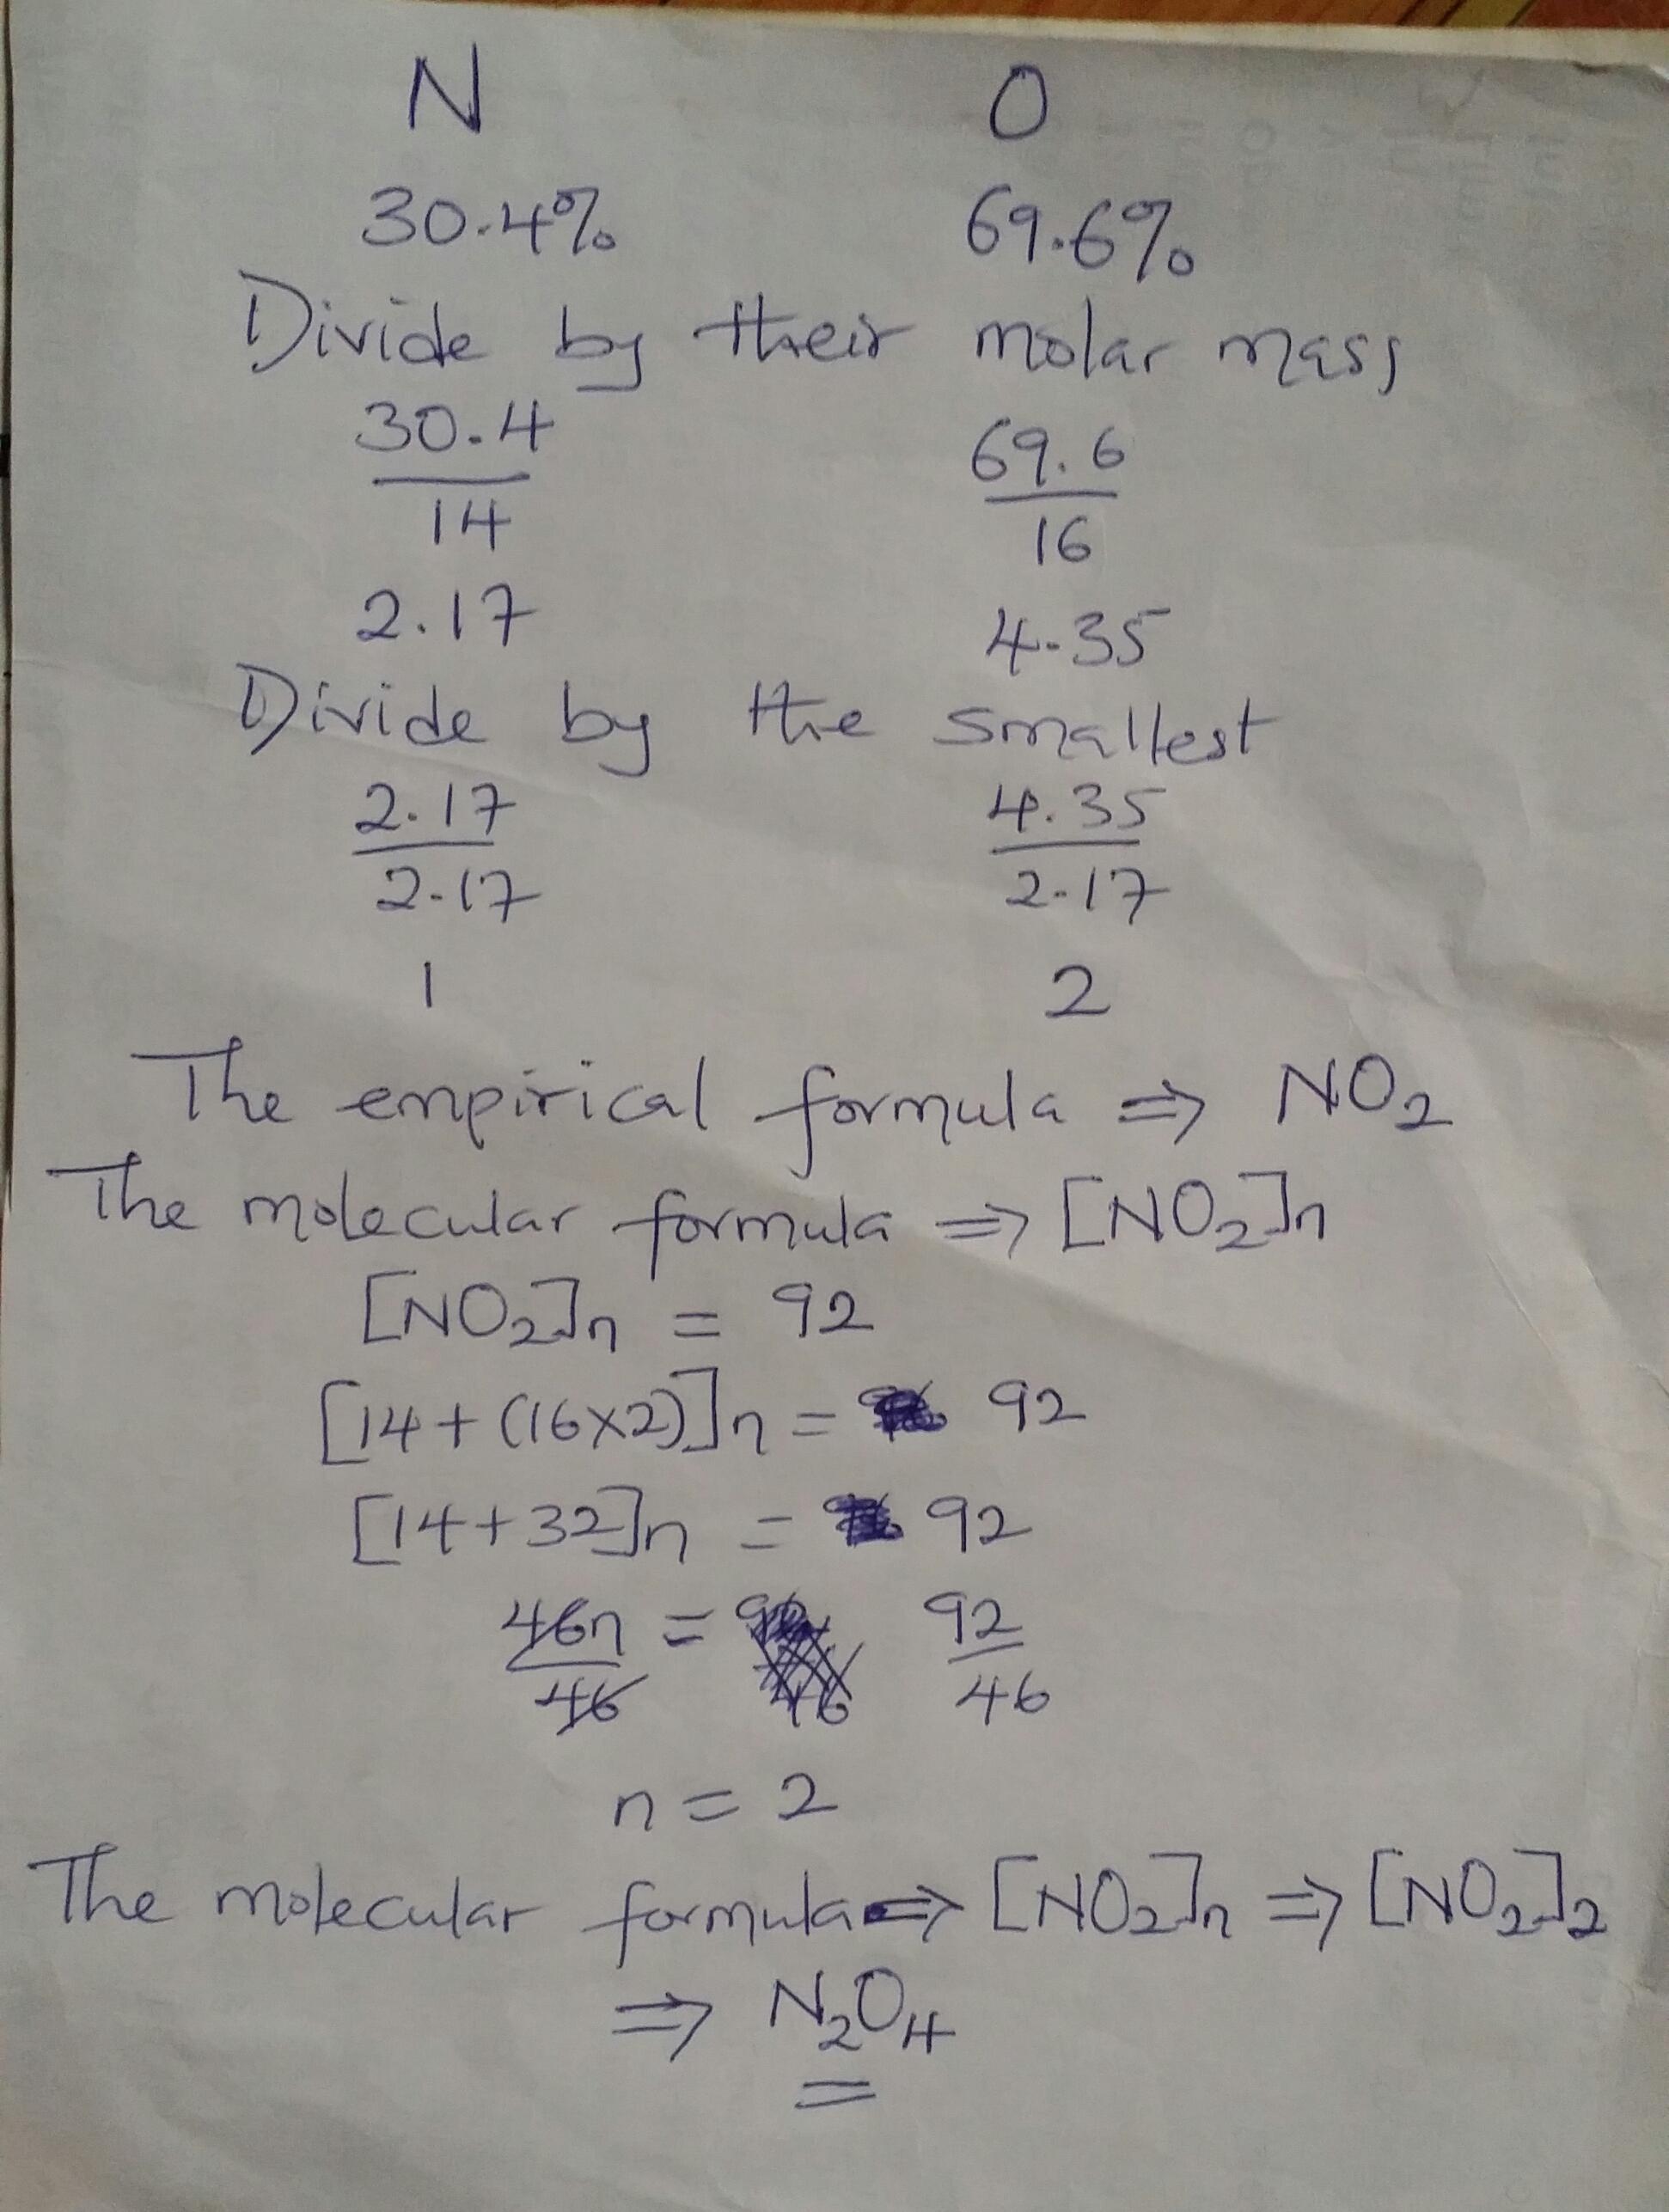 N O
30.4% 69.6%
Divide by their molar mass
30.4 69.6
14 16
2.17 4.35
Divide by the smallest
2.17 4.35
2.17 2.17
1 2
The empirical formula ⇒ NO₂
The molecular formula ⇒ [NO₂]n
[NO₂]n = 92
[14+(16×2)]n = 92
[14+32]n = 92
46n = 92
46 46
n = 2
The molecular formula ⇒ [NO₂]n ⇒ [NO₂]₂
⇒ N₂O₄